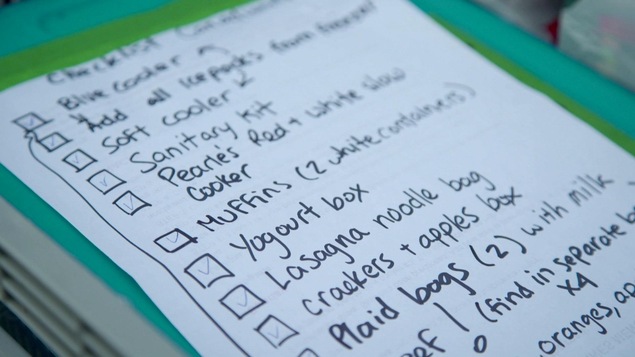 Checklist
Blue cooler
Add all icepacks from freezer
Soft cooler
Sanitary Kit
Pearle's Red + white slow
cooker
Muffins (2 white containers)
Yogourt box
Lasagna noodle bag
crackers + apples box
Plaid bags (2) with milk
(find in separate
x4
oranges,